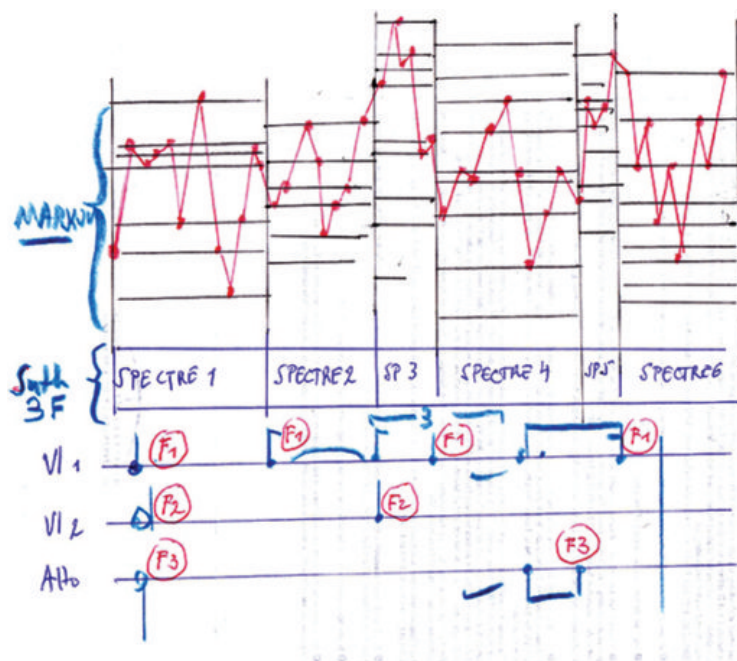 MARKOV
SPECTRE 1 SPECTRE2 SP 3 SPECTRE 4 SP5 SPECTRE6
Synth
3F
3
Vl 1 F1 F1 F1 F1
Vl 2 F2 F2
Alto F3 F3